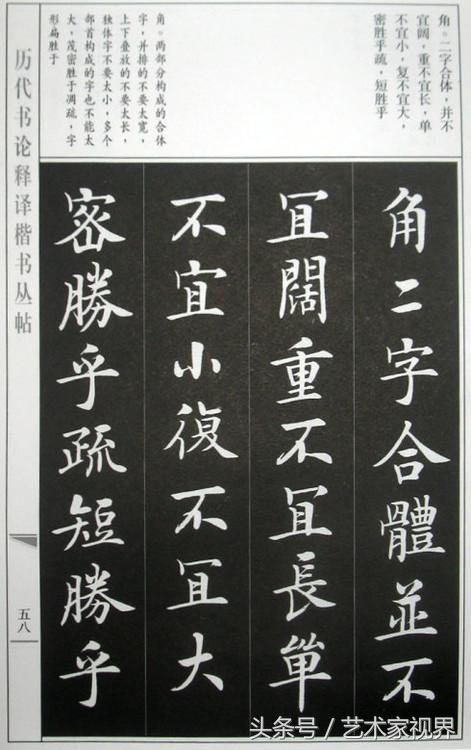 角。二字合体，并不
宜阔，重不宜长，单
不宜小，复不宜大，
密胜乎疏，短胜乎
角。两部分构成的合体
字，并排的不要太宽，
上下叠放的不要太长，
独体字不要太小，多个
部首构成的字也不能太
大，茂密胜于凋疏，字
形扁胜于
角二字合體並不
冝闊重不冝長單
不宜小復不冝大
密勝乎疏短勝乎
历代书论释译楷书丛帖
五八
头条号／艺术家视界